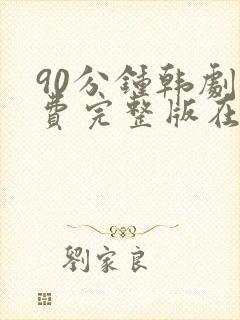 90分鍾韩劇
費完整版在
劉家良